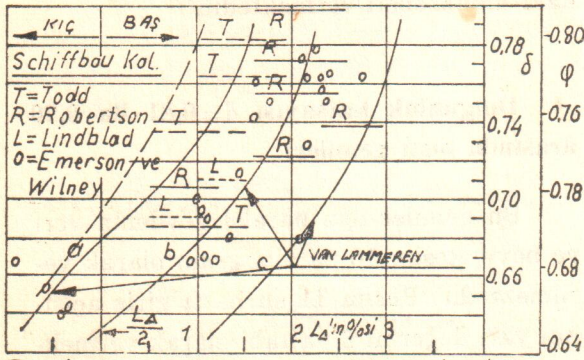 KIÇ BAŞ
Schiffbau Kal.
T=Todd
R=Robertson
L=Lindblad
O=Emerson ve
Wilney
T R
R
T
R
T R
L
R
L T
a b c
d
VAN LAMMEREN
LΔ/2 1 2 LΔ'ın %si 3
δ φ
0,78
0,74
0,70
0,66
-0.80
-0.76
-0.78
-0.68
-0.64